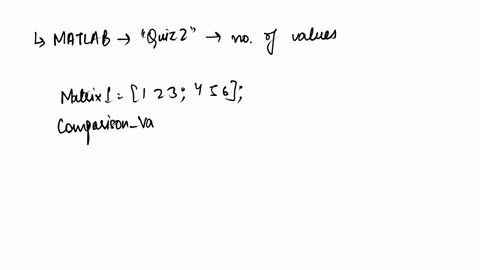 ↳ MATLAB → "Quiz2" → no. of values
Matrix1 = [1 2 3; 4 5 6];
Comparison_Va